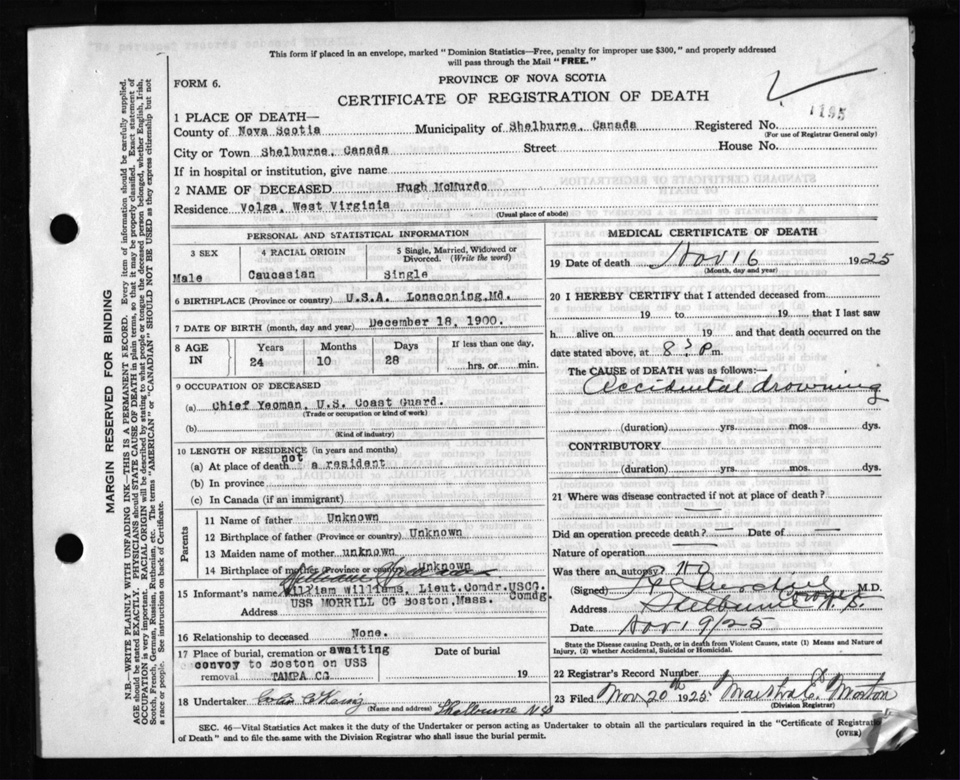 This form if placed in an envelope, marked "Dominion Statistics—Free, penalty for improper use $300," and properly addressed
will pass through the Mail "FREE."
FORM 6.
PROVINCE OF NOVA SCOTIA
CERTIFICATE OF REGISTRATION OF DEATH
1195
1 PLACE OF DEATH—
County of Nova Scotia Municipality of Shelburne, Canada Registered No.
(For use of Registrar General only)
City or Town Shelburne, Canada Street House No.
If in hospital or institution, give name
2 NAME OF DECEASED Hugh McMurdo
Residence Volga, West Virginia
(Usual place of abode)
PERSONAL AND STATISTICAL INFORMATION
3 SEX Male
4 RACIAL ORIGIN Caucasian
5 Single, Married, Widowed or Divorced. (Write the word) Single
6 BIRTHPLACE (Province or country) U.S.A. Lonaconing,Md.
7 DATE OF BIRTH (month, day and year) December 18, 1900.
8 AGE IN Years Months Days If less than one day,
24 10 28 hrs. or min.
9 OCCUPATION OF DECEASED
(a) Chief Yeoman, U.S. Coast Guard.
(Trade or occupation or kind of work)
(b)
(Kind of industry)
10 LENGTH OF RESIDENCE (in years and months)
(a) At place of death not a resident
(b) In province
(c) In Canada (if an immigrant)
Parents
11 Name of father Unknown
12 Birthplace of father (Province or country) Unknown
13 Maiden name of mother unknown
14 Birthplace of mother (Province or country) Unknown
William Williams
15 Informant's name William Williams, Lieut.Comdr.USCG. Comdg.
Address USS MORRILL CG Boston,Mass.
16 Relationship to deceased None.
17 Place of burial, cremation or removal awaiting convoy to Boston on USS TAMPA CG
Date of burial 19
18 Undertaker
(Name and address) Shelburne N.S.
MEDICAL CERTIFICATE OF DEATH
19 Date of death Nov 16 1925
(Month, day and year)
20 I HEREBY CERTIFY that I attended deceased from
19 to 19 that I last saw
h alive on 19 and that death occurred on
date stated above, at 8 P m.
The CAUSE of DEATH was as follows:—
Accidental drowning
(duration) yrs. mos. dys.
CONTRIBUTORY
(duration) yrs. mos. dys.
21 Where was disease contracted if not at place of death?
Did an operation precede death? — Date of —
Nature of operation
Was there an autopsy? No
(Signed) Churchill Coroner M.D.
Address Shelburne N.S.
Date Nov 19/25
State the Disease causing Death, or in death from Violent Causes, state (1) Means and Nature of
Injury, (2) whether Accidental, Suicidal or Homicidal.
22 Registrar's Record Number
23 Filed Nov 20th 1925 Marshal E Morton
(Division Registrar)
SEC. 46—Vital Statistics Act makes it the duty of the Undertaker or person acting as Undertaker to obtain all the particulars required in the "Certificate of Registration
of Death" and to file the same with the Division Registrar who shall issue the burial permit.
(OVER)
MARGIN RESERVED FOR BINDING
N.B.—WRITE PLAINLY WITH UNFADING INK—THIS IS A PERMANENT RECORD. Every item of information should be carefully supplied.
AGE should be stated EXACTLY. PHYSICIANS should STATE CAUSE OF DEATH in plain terms, so that it may be properly classified. Exact statement of
OCCUPATION is very important. RACIAL ORIGIN will be described by stating to what people or tongue the deceased person belonged, whether English, Irish,
Scotch, French, German, Russian, Ruthenian, etc. The terms "AMERICAN" or "CANADIAN" SHOULD NOT BE USED as they express citizenship but not
a race or people. See instructions on back of Certificate.